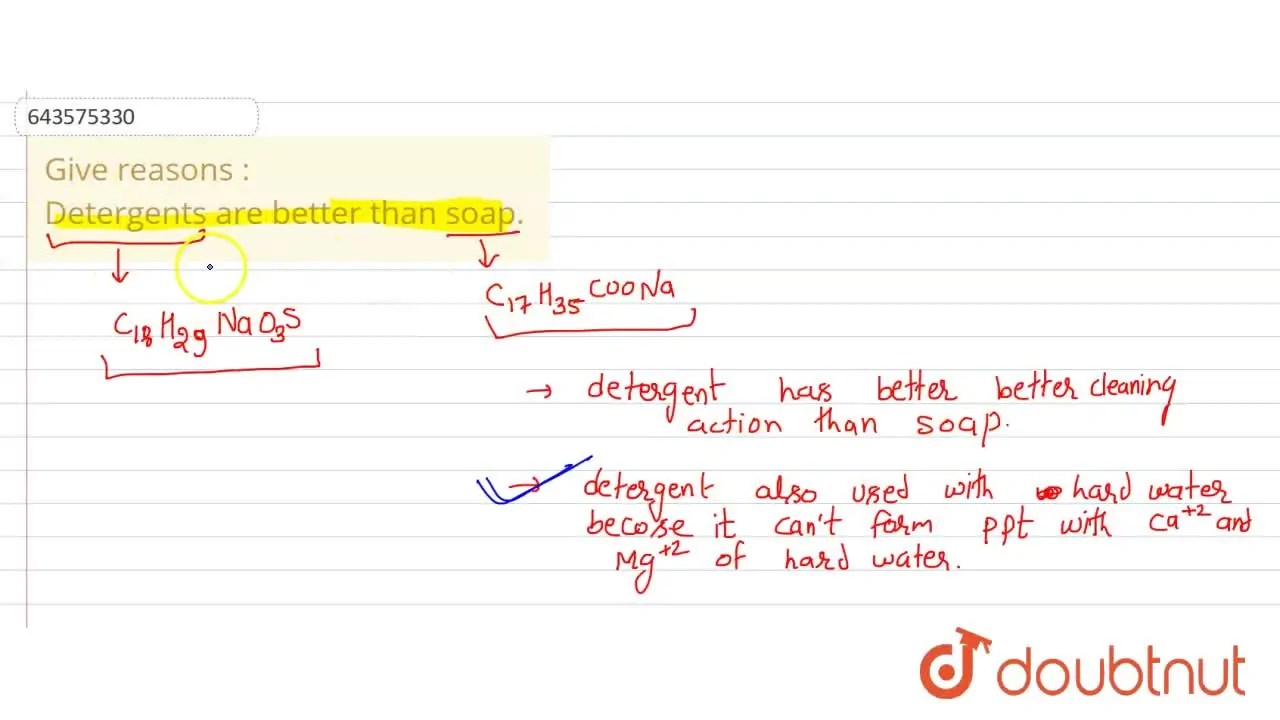 643575330
Give reasons :
Detergents are better than soap.
C₁₈H₂₉NaO₃S
C₁₇H₃₅COONa
→ detergent has better better cleaning
action than soap.
→ detergent also used with hard water
becose it can't form ppt with Ca⁺² and
Mg⁺² of hard water.
doubtnut